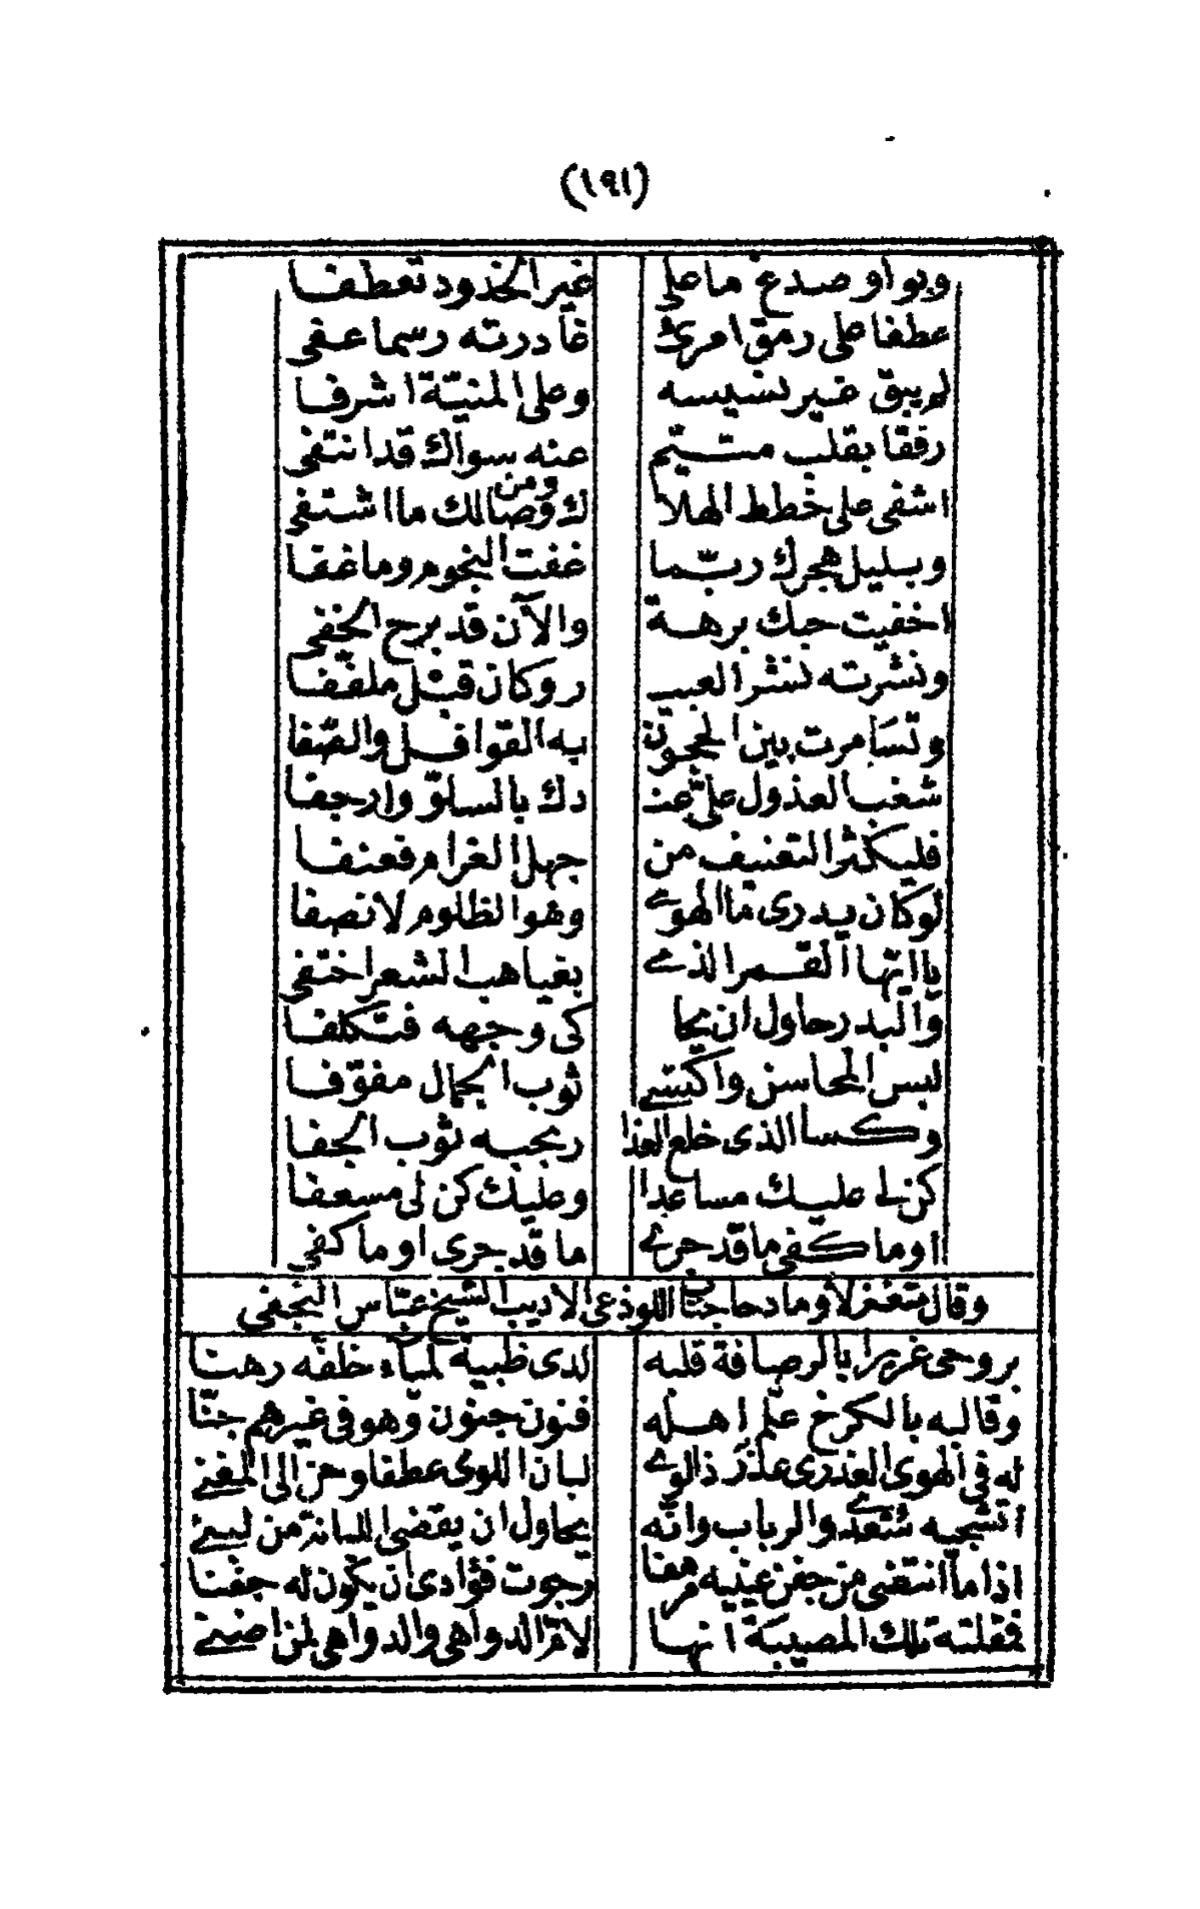 (١٩١)
وبواو صدغ ما على غير الخدود تعطفا
عطفا على رمق امرئ غادرته رسما عفى
لم يبق غير نسيسه وعلى المنيّة اشرفا
رفقا بقلب متيّم عنه سواك قد انتفى
اشفى على خطط الهلا ك ومن وصالك ما اشتفى
وبليل هجرك ربّما غفت النجوم وما غفا
اخفيت حبك برهة والآن قد برح الخفى
ونشرته نشر العبيـ ر وكان قبل ملفّفا
وتسامرت بين الحجون به القوافل والصّفا
شغب العذول علىّ عنـ دك بالسلوّ وارجفا
فليكثر التعنيف من جهل الغرام فعنفا
لو كان يدرى ما الهوى وهو الظلوم لانصفا
يا ايّها القمر الذى بغياهب الشعر اختفى
والبدر حاول ان يحا كى وجهه فتكلفا
لبس المحاسن واكتسى ثوب الجمال مفوّفا
وكسا الذى خلع العذا ر بحبه ثوب الجفا
كن لى عليك مساعدا وعليك كن لى مسعفا
اوما كفى ما قد جرى ما قد جرى اوما كفى
وقال متغزلا ومادحا جناب اللوذعى الاديب الشيخ عبّاس النجفى
بروحى غريرا بالرصافة قلبه لدى ظبية لمياء خلفه رهنا
وقالبه بالكرخ علّم اهله فنون جنون وهو فى غيرهم جنّا
له فى الهوى العذرى عذر ذا لوى لبان اللوى عطفا وحنّ الى المغنى
اتشجيه سعدى والرباب وانّه يحاول ان يقضى اللبانة من لبنى
اذا ما انتضى من جفن عينيه مرهفا رجوت فؤادى ان يكون له جفنا
فمقلته تلك المصيبة انها لامّ الدواهى والدواهى لمن اضنى